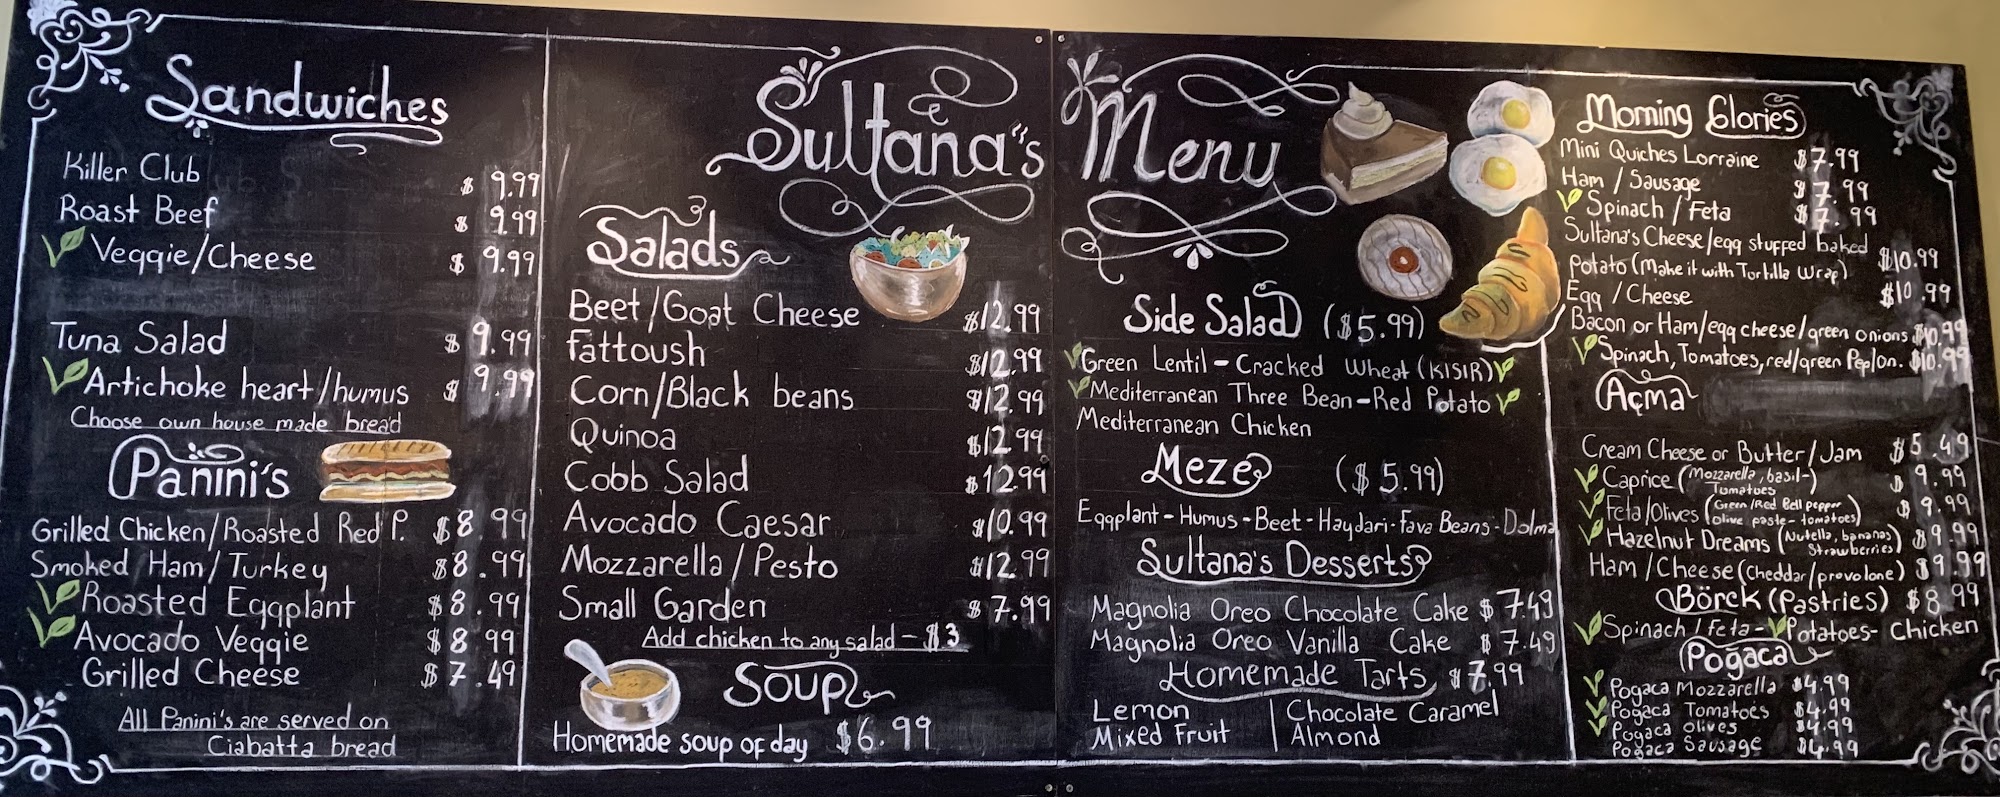 Sandwiches
Killer Club $ 9.99
Roast Beef $ 9.99
Veggie/Cheese $ 9.99
Tuna Salad $ 9.99
Artichoke heart/humus $ 9.99
Choose own house made bread
Panini's
Grilled Chicken/Roasted Red P. $8.99
Smoked Ham/Turkey $8.99
Roasted Eggplant $8.99
Avocado Veggie $8.99
Grilled Cheese $7.49
All Panini's are served on
Ciabatta bread
Sultana's Menu
Salads
Beet/Goat Cheese $12.99
Fattoush $12.99
Corn/Black beans $12.99
Quinoa $12.99
Cobb Salad $12.99
Avocado Caesar $10.99
Mozzarella/Pesto $12.99
Small Garden $7.99
Add chicken to any salad - $3
Soup
Homemade soup of day $6.99
Side Salad ($5.99)
Green Lentil - Cracked Wheat (KISIR)
Mediterranean Three Bean - Red Potato
Mediterranean Chicken
Meze ($5.99)
Eggplant - Humus - Beet - Haydari - Fava Beans - Dolma
Sultana's Desserts
Magnolia Oreo Chocolate Cake $7.49
Magnolia Oreo Vanilla Cake $7.49
Homemade Tarts $7.99
Lemon | Chocolate Caramel
Mixed Fruit | Almond
Morning Glories
Mini Quiches Lorraine $7.99
Ham / Sausage $7.99
Spinach / Feta $7.99
Sultana's Cheese/egg stuffed baked
Potato (Make it with Tortilla Wrap) $10.99
Egg / Cheese $10.99
Bacon or Ham/egg cheese/green onions $10.99
Spinach, Tomatoes, red/green Pep/on. $10.99
Açma
Cream Cheese or Butter/Jam $5.49
Caprice (Mozzarella, basil- Tomatoes) $9.99
Feta/Olives (Green/Red Bell pepper olive paste - tomatoes) $9.99
Hazelnut Dreams (Nutella, bananas Strawberries) $9.99
Ham/Cheese (Cheddar/provolone) $9.99
Börek (Pastries) $8.99
Spinach/feta - Potatoes - Chicken
Poğaca
Pogaca Mozzarella $4.99
Pogaca Tomatoes $4.99
Pogaca olives $4.99
Pogaca Sausage $4.99